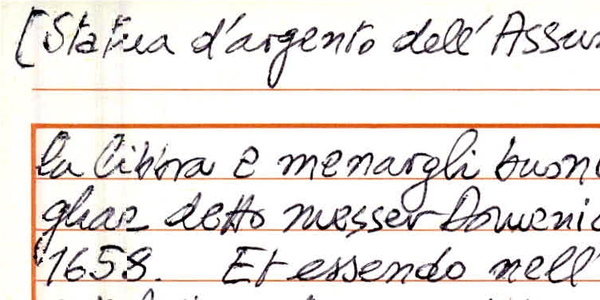 [Statua d'argento dell'Assun
la libbra e menargli buon
detto messer Domenic
1658. Et essendo nell'